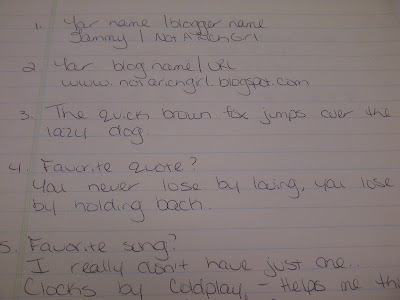 1. Your name / blogger name
Sammy / NotARichGirl
2. Your blog name / URL
www.notarichgrl.blogspot.com
3. The quick brown fox jumps over the
lazy dog.
4. Favorite quote?
You never lose by loving, you lose
by holding back..
5. Favorite song?
I really don't have just one...
Clocks by Coldplay, - Helps me